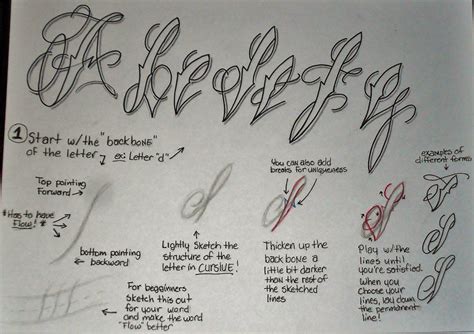 ① Start w/the "backbone"
of the letter ex: Letter "d"
Top pointing
Forward
*Has to have
Flow!*
bottom pointing
backward
For begginners
Sketch this out
for your word
and make the word
"Flow" better
Lightly Sketch the
structure of the
letter in CURSIVE!
You can also add
breaks for uniqueness
Thicken up the
backbone a
little bit darker
than the rest of
the sketched
lines
Play w/the
lines until
you're satisfied.
When you
choose your
lines, lay down
the permanent
line!
examples of
different forms